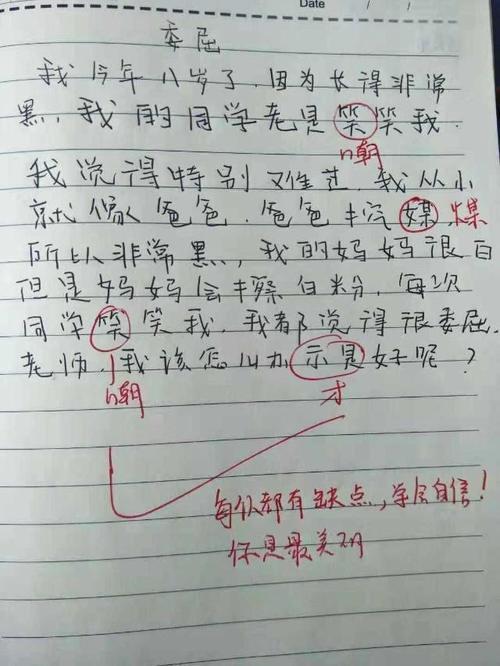 Date / /
委屈
我今年八岁了.因为长得非常
黑,我的同学老是笑笑我.
口朝
我说得特别难过.我从小
就像爸爸.爸爸卡沉媒,煤
所以非常黑,我的妈妈很白
但是妈妈会搽白粉,每次
同学笑笑我,我都说得很委屈.
老师,我该怎么办示是好呢?
口朝
才
每个都有缺点,学会自信!
你是最美的